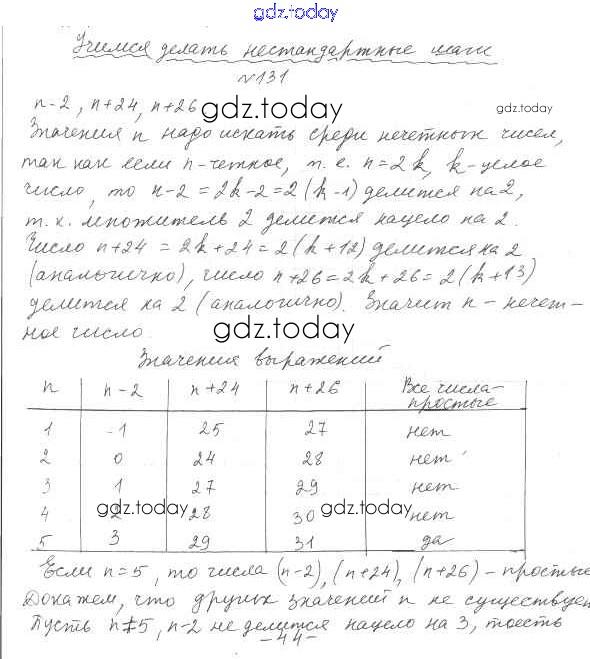 gdz.today
Учимся делать нестандартные шаги
№131
n-2, n+24, n+26 gdz.today gdz.today
Значения n надо искать среди нечетных чисел,
так как если n-четное, т. е. n=2k, k-целое
число, то n-2=2k-2=2(k-1) делится на 2,
т. к. множитель 2 делится нацело на 2.
Число n+24=2k+24=2(k+12) делится на 2
(аналогично), число n+26=2k+26=2(k+13)
делится на 2 (аналогично). Значит n-нечет-
ное число. gdz.today
Значения выражений
n n-2 n+24 n+26 Все числа-
простые
1 -1 25 27 нет
2 0 24 28 нет
3 1 27 29 нет
gdz.today gdz.today
4 2 28 30 нет
5 3 29 31 да
Если n=5, то числа (n-2), (n+24), (n+26)-простые
Докажем, что других значений n не существует
Пусть n≠5, n-2 не делится нацело на 3, тоесть
-44-